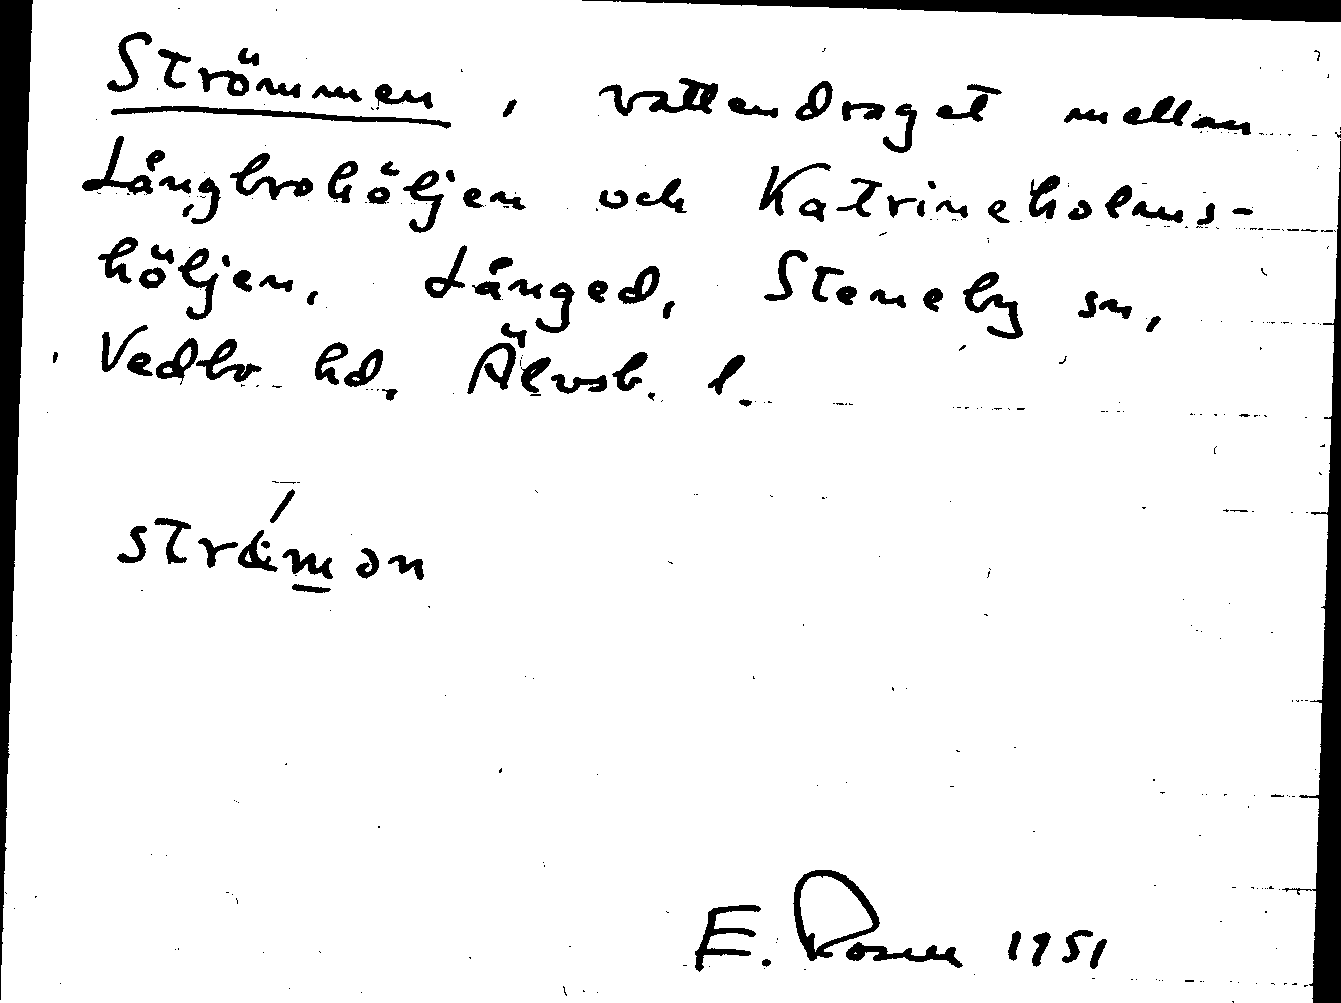 Strömmen, vattendraget mellan
Långbrohöljen och Katrineholms-
höljen, Långed, Steneby sn,
Vedbo hd. Älvsb. l.
strǿmən
E. Rosell 1951